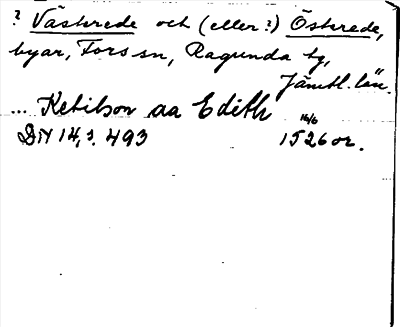 ? Västerede och (eller?) Österede,
byar, Fors sn, Ragunda tg,
Jämtl. län.
... Ketilson aa Edith 16/6
DN 14, s. 493 1526 or.